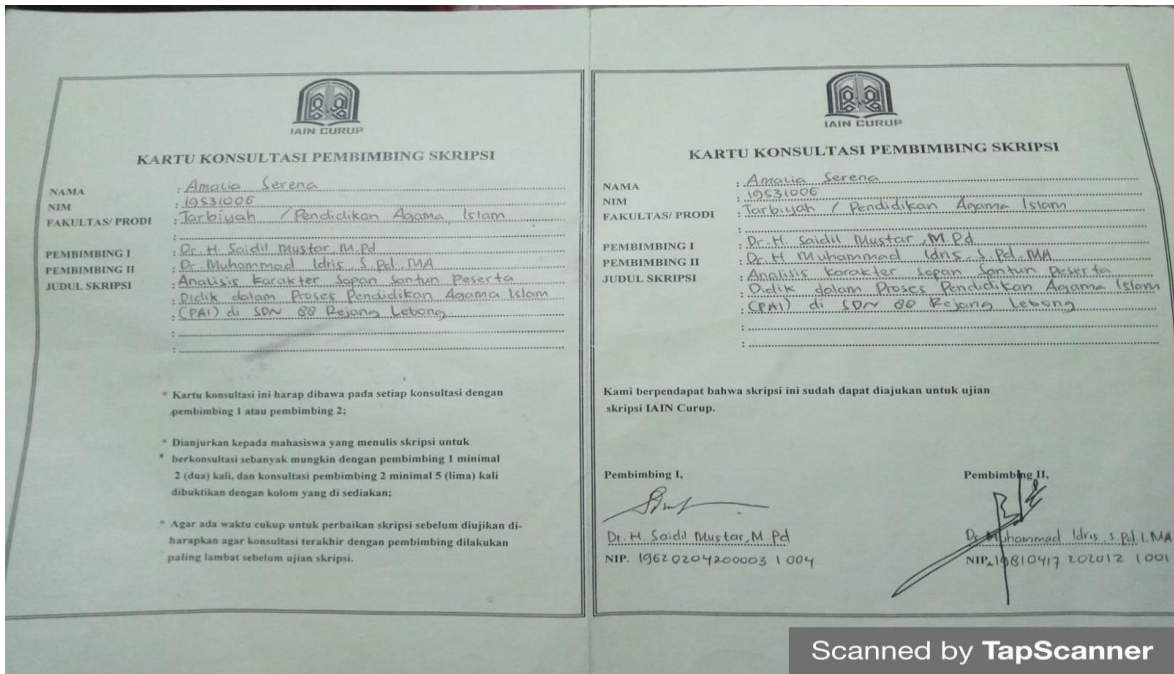 IAIN CURUP
KARTU KONSULTASI PEMBIMBING SKRIPSI
NAMA : Amalia Serena
NIM : 19531006
FAKULTAS/ PRODI : Tarbiyah / Pendidikan Agama Islam
:
PEMBIMBING I : Dr. H. Saidil Mustar, M.Pd
PEMBIMBING II : Dr. Muhammad Idris, S.Pd, MA
JUDUL SKRIPSI : Analisis Karakter Sopan Santun Peserta
: Didik dalam Proses Pendidikan Agama Islam
: (PAI) di SDN 88 Rejang Lebong
:
:
* Kartu konsultasi ini harap dibawa pada setiap konsultasi dengan
pembimbing 1 atau pembimbing 2;
* Dianjurkan kepada mahasiswa yang menulis skripsi untuk
* berkonsultasi sebanyak mungkin dengan pembimbing 1 minimal
2 (dua) kali, dan konsultasi pembimbing 2 minimal 5 (lima) kali
dibuktikan dengan kolom yang di sediakan;
* Agar ada waktu cukup untuk perbaikan skripsi sebelum diujikan di-
harapkan agar konsultasi terakhir dengan pembimbing dilakukan
paling lambat sebelum ujian skripsi.
IAIN CURUP
KARTU KONSULTASI PEMBIMBING SKRIPSI
NAMA : Amalia Serena
NIM : 19531006
FAKULTAS/ PRODI : Tarbiyah / Pendidikan Agama Islam
:
PEMBIMBING I : Dr. H. Saidil Mustar, M.Pd
PEMBIMBING II : Dr. H Muhammad Idris, S.Pd, MA
JUDUL SKRIPSI : Analisis Karakter Sopan Santun Peserta
: Didik dalam Proses Pendidikan Agama Islam
: (PAI) di SDN 88 Rejang Lebong
:
:
Kami berpendapat bahwa skripsi ini sudah dapat diajukan untuk ujian
skripsi IAIN Curup.
Pembimbing I,
Dr. H. Saidil Mustar, M.Pd
NIP. 19620204200003 1 004
Pembimbing II,
Dr. Muhammad Idris, S.Pd.I, MA
NIP. 19810417 202012 1 001
Scanned by TapScanner